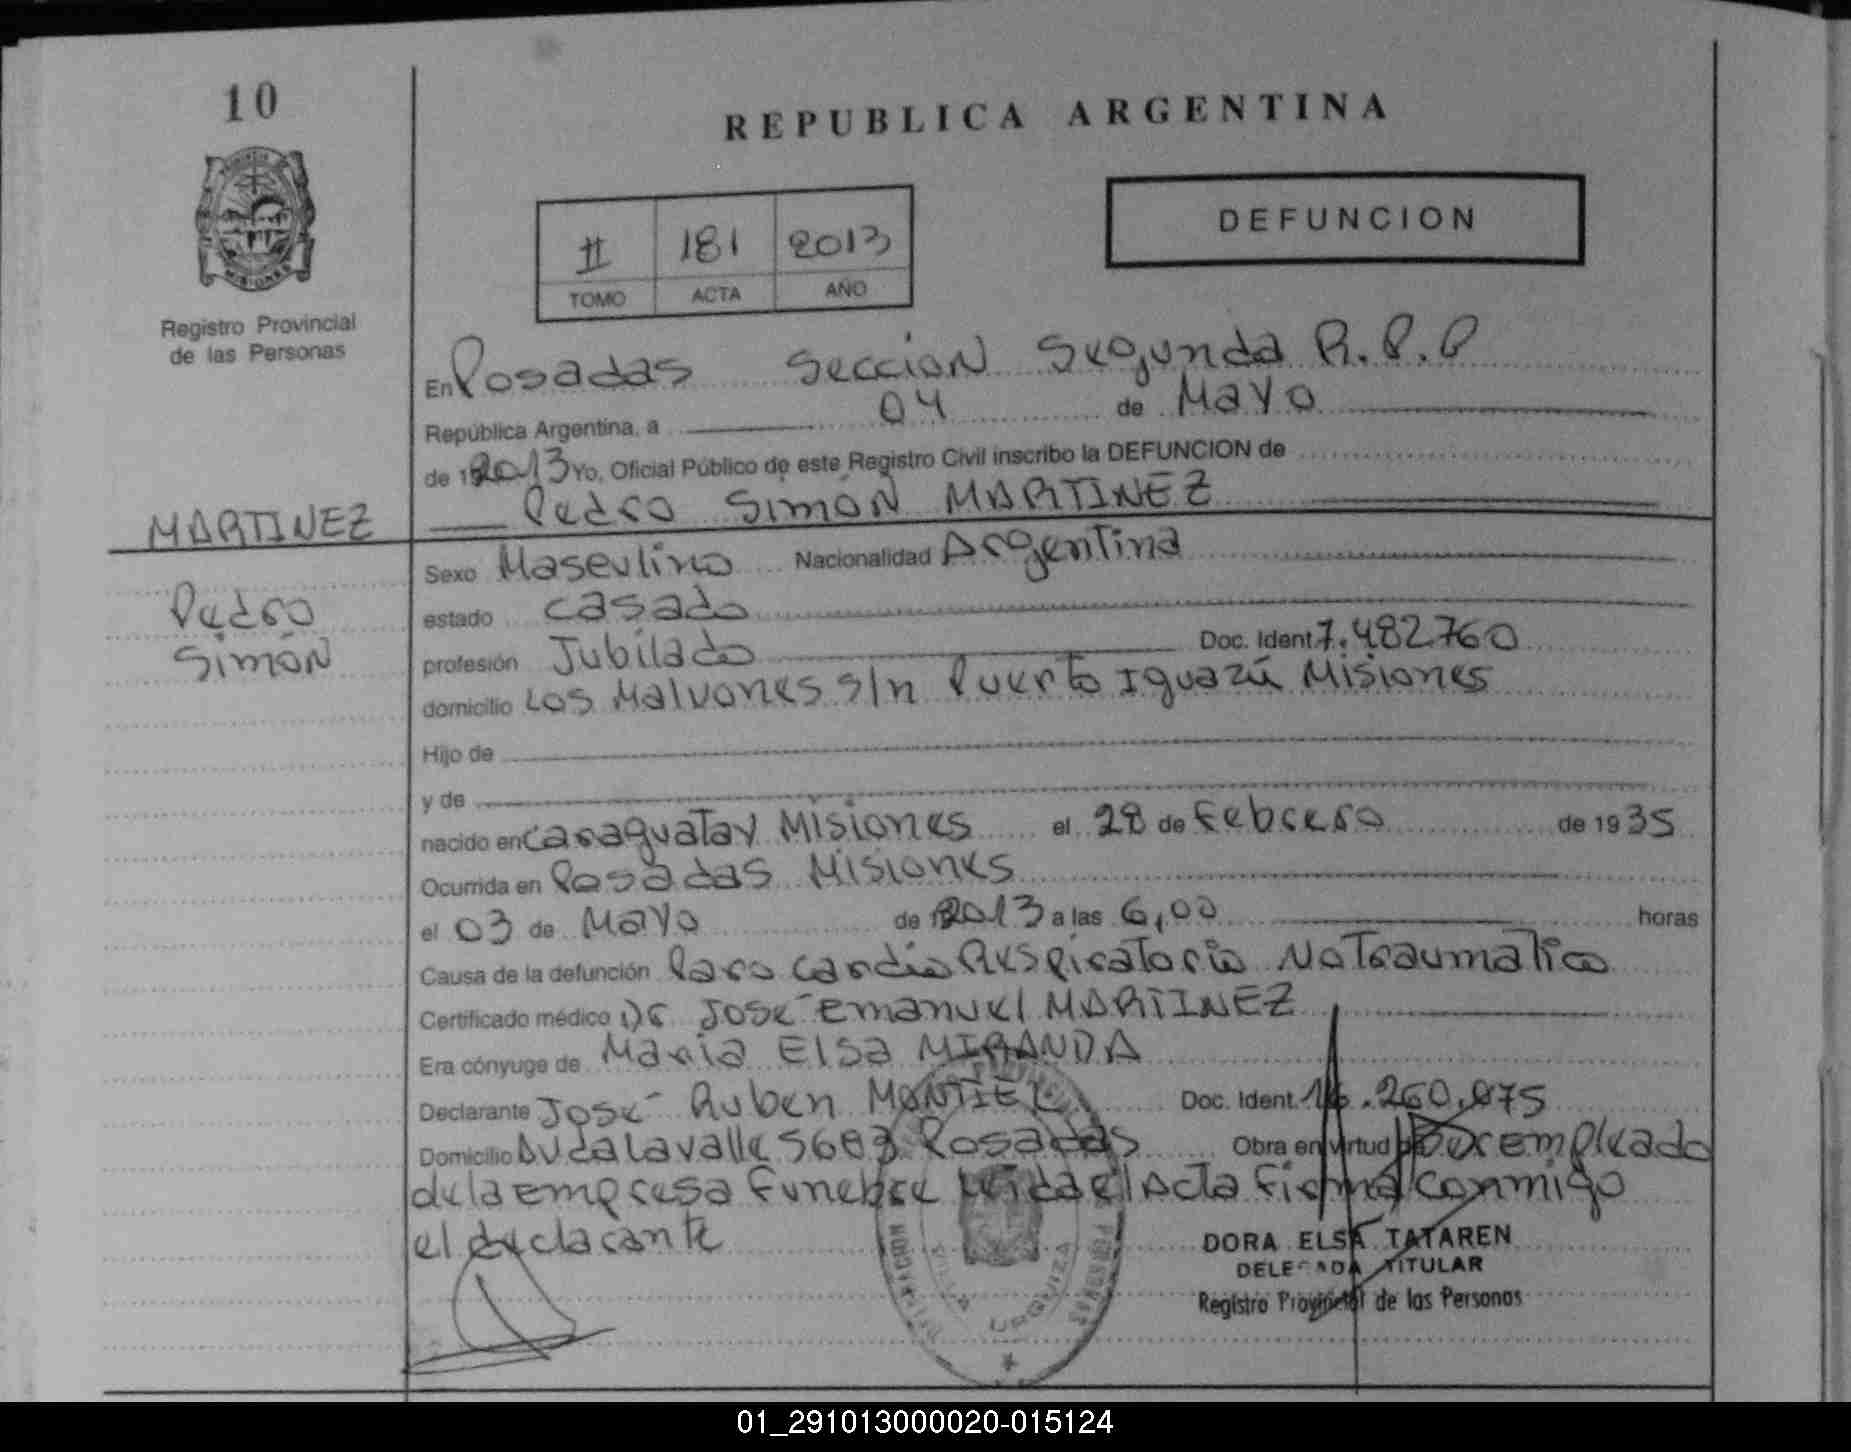 10
REPUBLICA ARGENTINA
II 181 2013
TOMO ACTA AÑO
DEFUNCION
Registro Provincial
de las Personas
En Posadas Seccion Segunda R.P.P
República Argentina, a 04 de Mayo
de 2013 Yo, Oficial Público de este Registro Civil inscribo la DEFUNCION de
Pedro Simón MARTINEZ
MARTINEZ
Pedro
Simón
Sexo Masculino Nacionalidad Argentina
estado casado
profesión Jubilado Doc. Ident. 7.482.760
domicilio Los Malvones s/n Puerto Iguazú Misiones
Hijo de
y de
nacido en Caraguatay Misiones el 28 de Febrero de 1935
Ocurrida en Posadas Misiones
el 03 de Mayo de 2013 a las 6,00 horas
Causa de la defunción Paro Cardio Respiratorio No Traumatico
Certificado médico Dr José Emanuel MARTINEZ
Era cónyuge de Maria Elsa MIRANDA
Declarante José Ruben MONTIEL Doc. Ident. 16.260.075
Domicilio Avda Lavalle 5603 Posadas Obra en virtud de ser empleado
de la empresa Funebre Leida el Acta Firma conmigo
el declarante
DORA ELSA TATAREN
DELEGADA TITULAR
Registro Provincial de las Personas
01_291013000020-015124